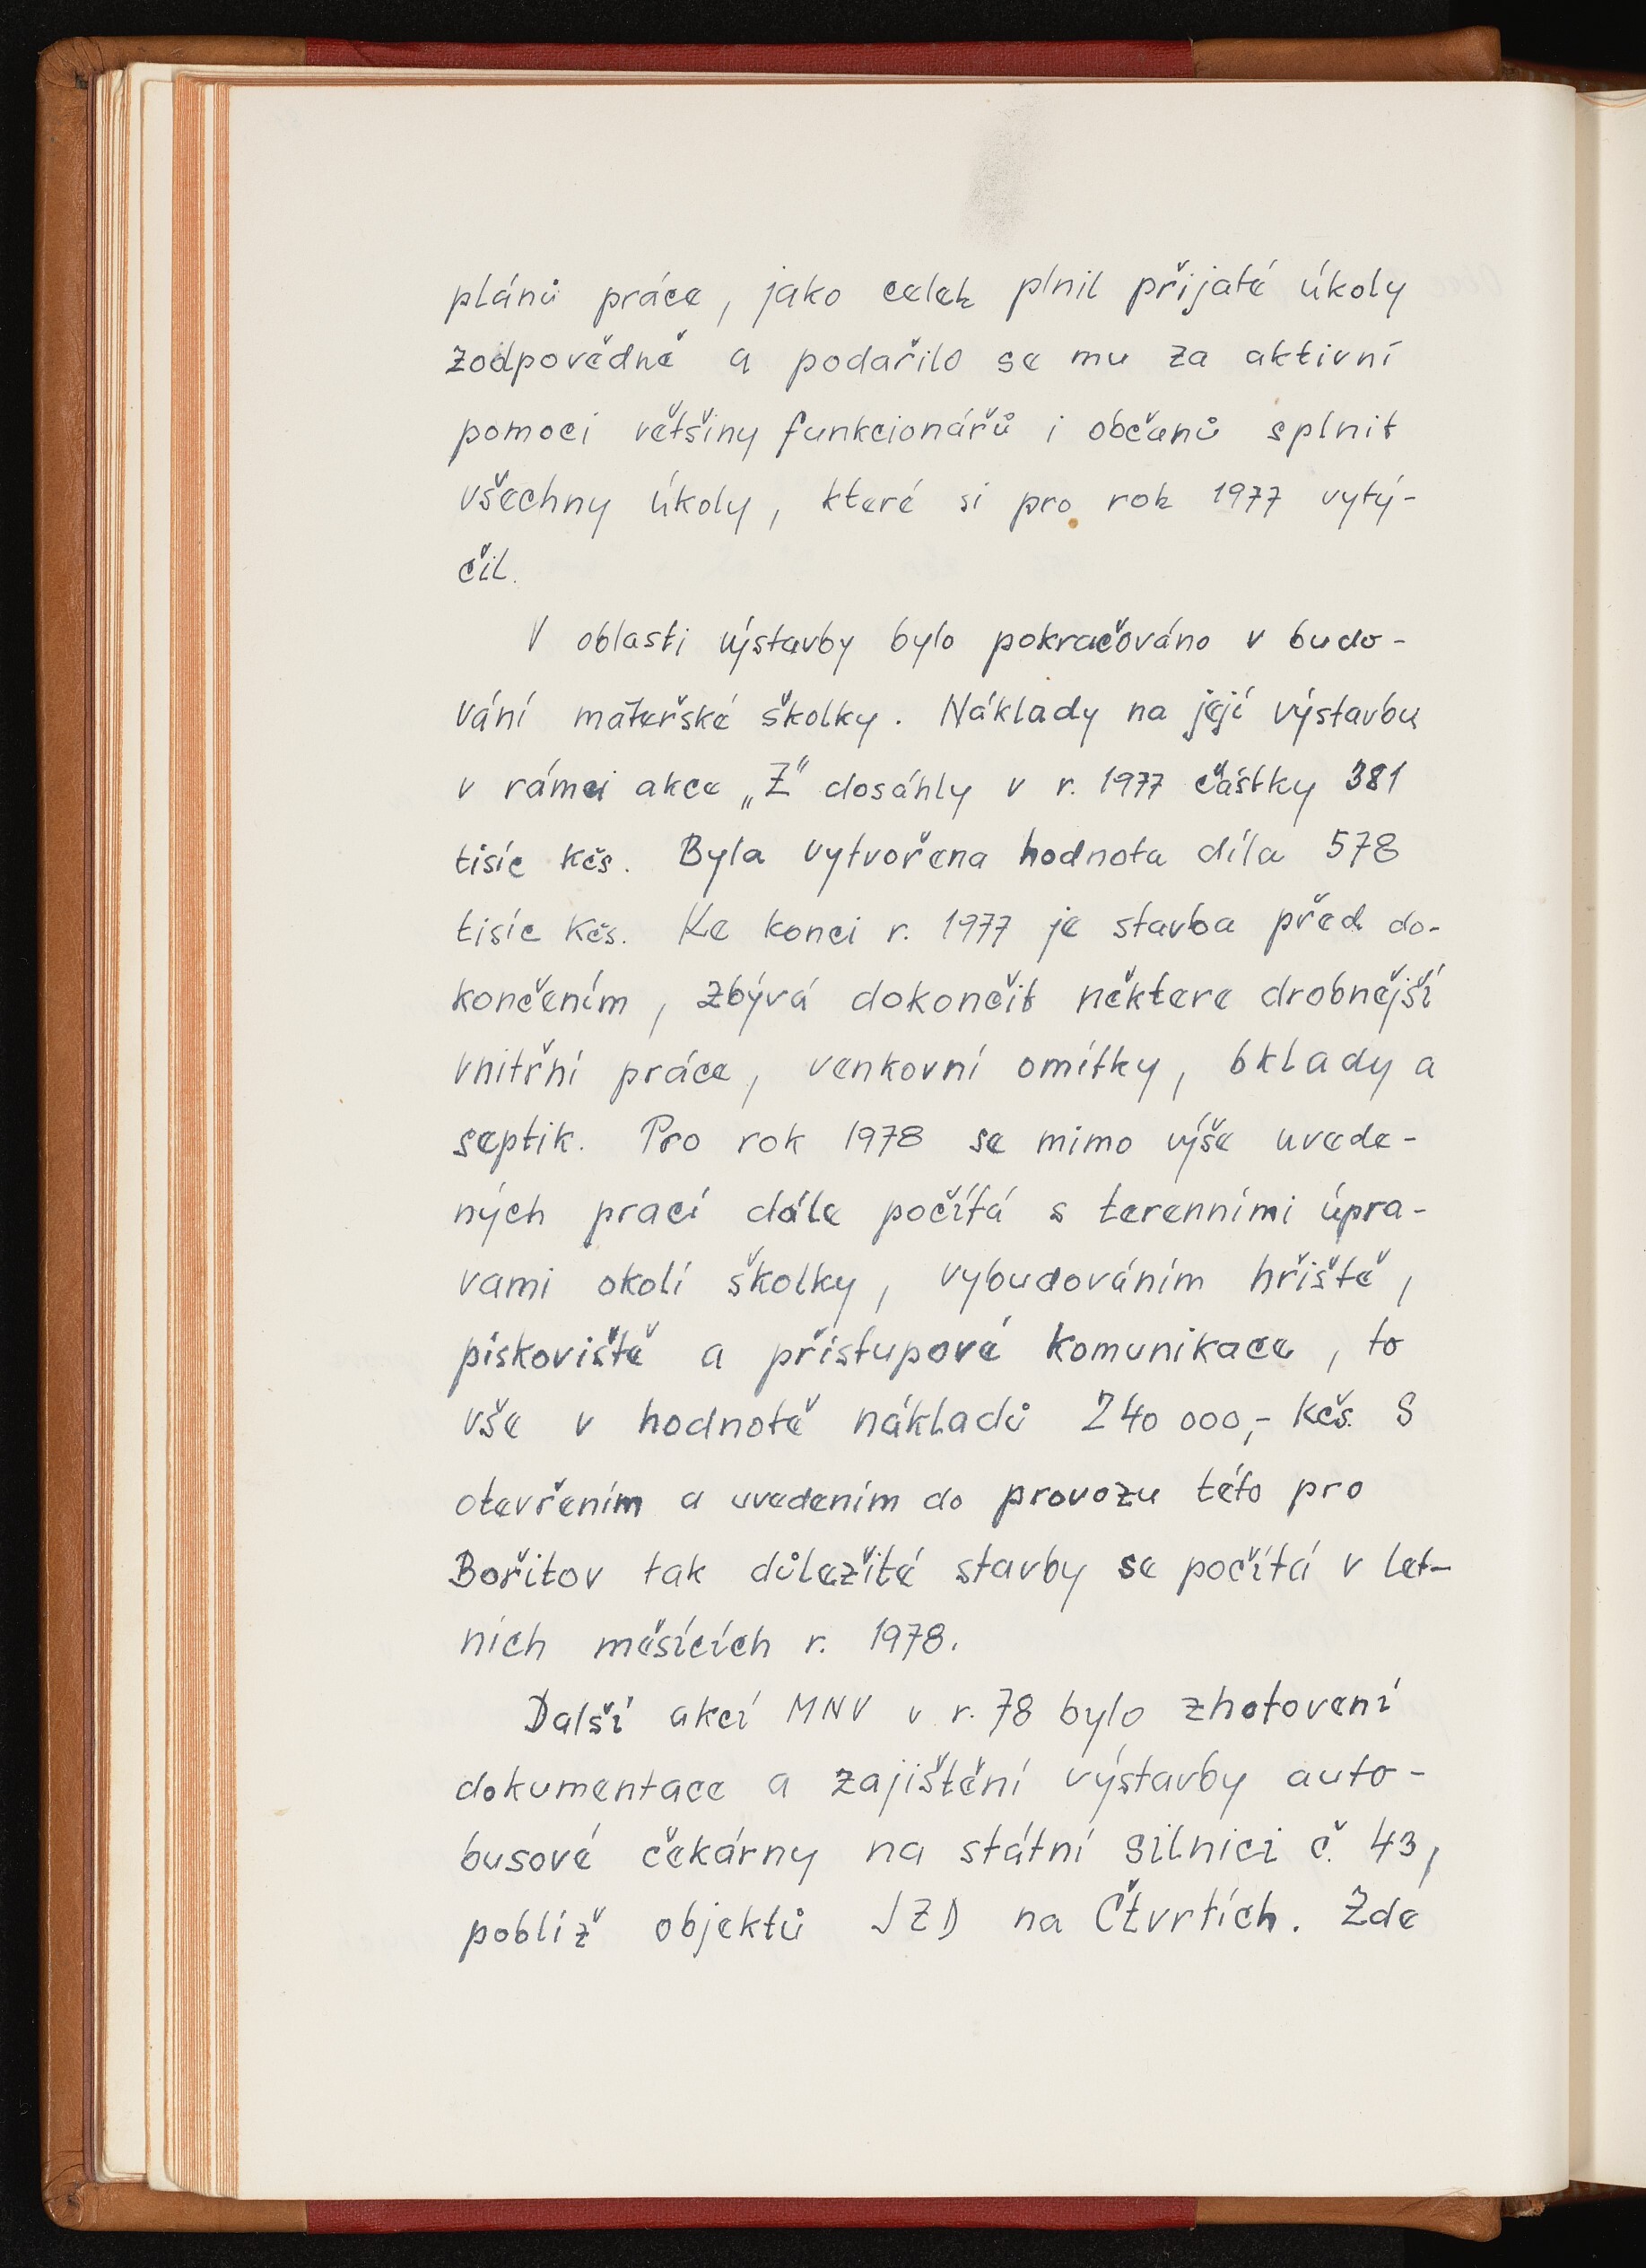 plánů práce, jako celek plnil přijaté úkoly
zodpovědně a podařilo se mu za aktivní
pomoci většiny funkcionářů i občanů splnit
všechny úkoly, které si pro rok 1977 vytý-
čil.
V oblasti výstavby bylo pokračováno v budo-
vání mateřské školky. Náklady na její výstavbu
v rámci akce „Z" dosáhly v r. 1977 částky 381
tisíc Kčs. Byla vytvořena hodnota díla 578
tisíc Kčs. Ke konci r. 1977 je stavba před do-
končením, zbývá dokončit některe drobnější
vnitřní práce, venkovní omítky, obklady a
septik. Pro rok 1978 se mimo výše uvede-
ných prací dále počítá s terenními úpra-
vami okolí školky, vybudováním hřiště,
pískoviště a přístupové komunikace, to
vše v hodnotě nákladů 240 000,- Kčs. S
otevřením a uvedením do provozu této pro
Bořitov tak důležité stavby se počítá v let-
ních měsících r. 1978.
Další akcí MNV v r. 78 bylo zhotovení
dokumentace a zajištění výstavby auto-
busové čekárny na státní silnici č. 43,
poblíž objektů JZD na Čtvrtích. Zde